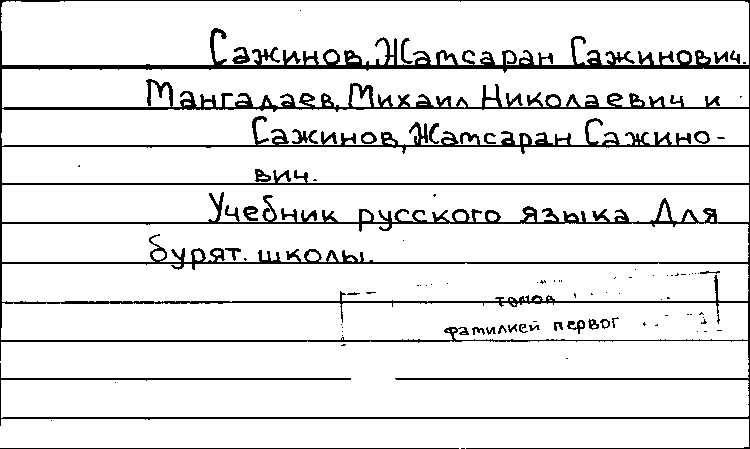 Сажинов, Жамсаран Сажинович.
Мангадаев, Михаил Николаевич и
Сажинов, Жамсаран Сажино-
вич.
Учебник русского языка Для
бурят. школы.
томов
фамилией первог